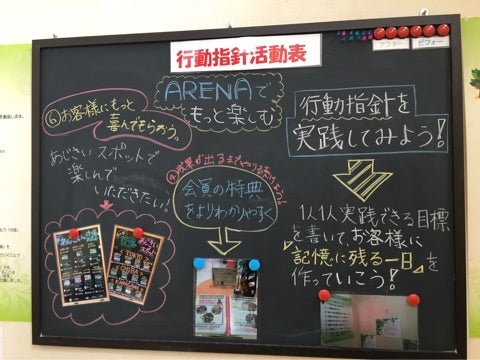 行動指針活動表
アフター
ビフォー
ARENAで
もっと楽しむ
⑥お客様にもっと
喜んでもらおう。
あじさいスポットで
楽しんで
いただきたい。
④成果が出るまでやり続けよう。
会員の特典
をよりわかりやすく
行動指針を
実践してみよう!
1人1人実践できる目標
を書いて、お客様に
記憶に残る一日を
作っていこう!